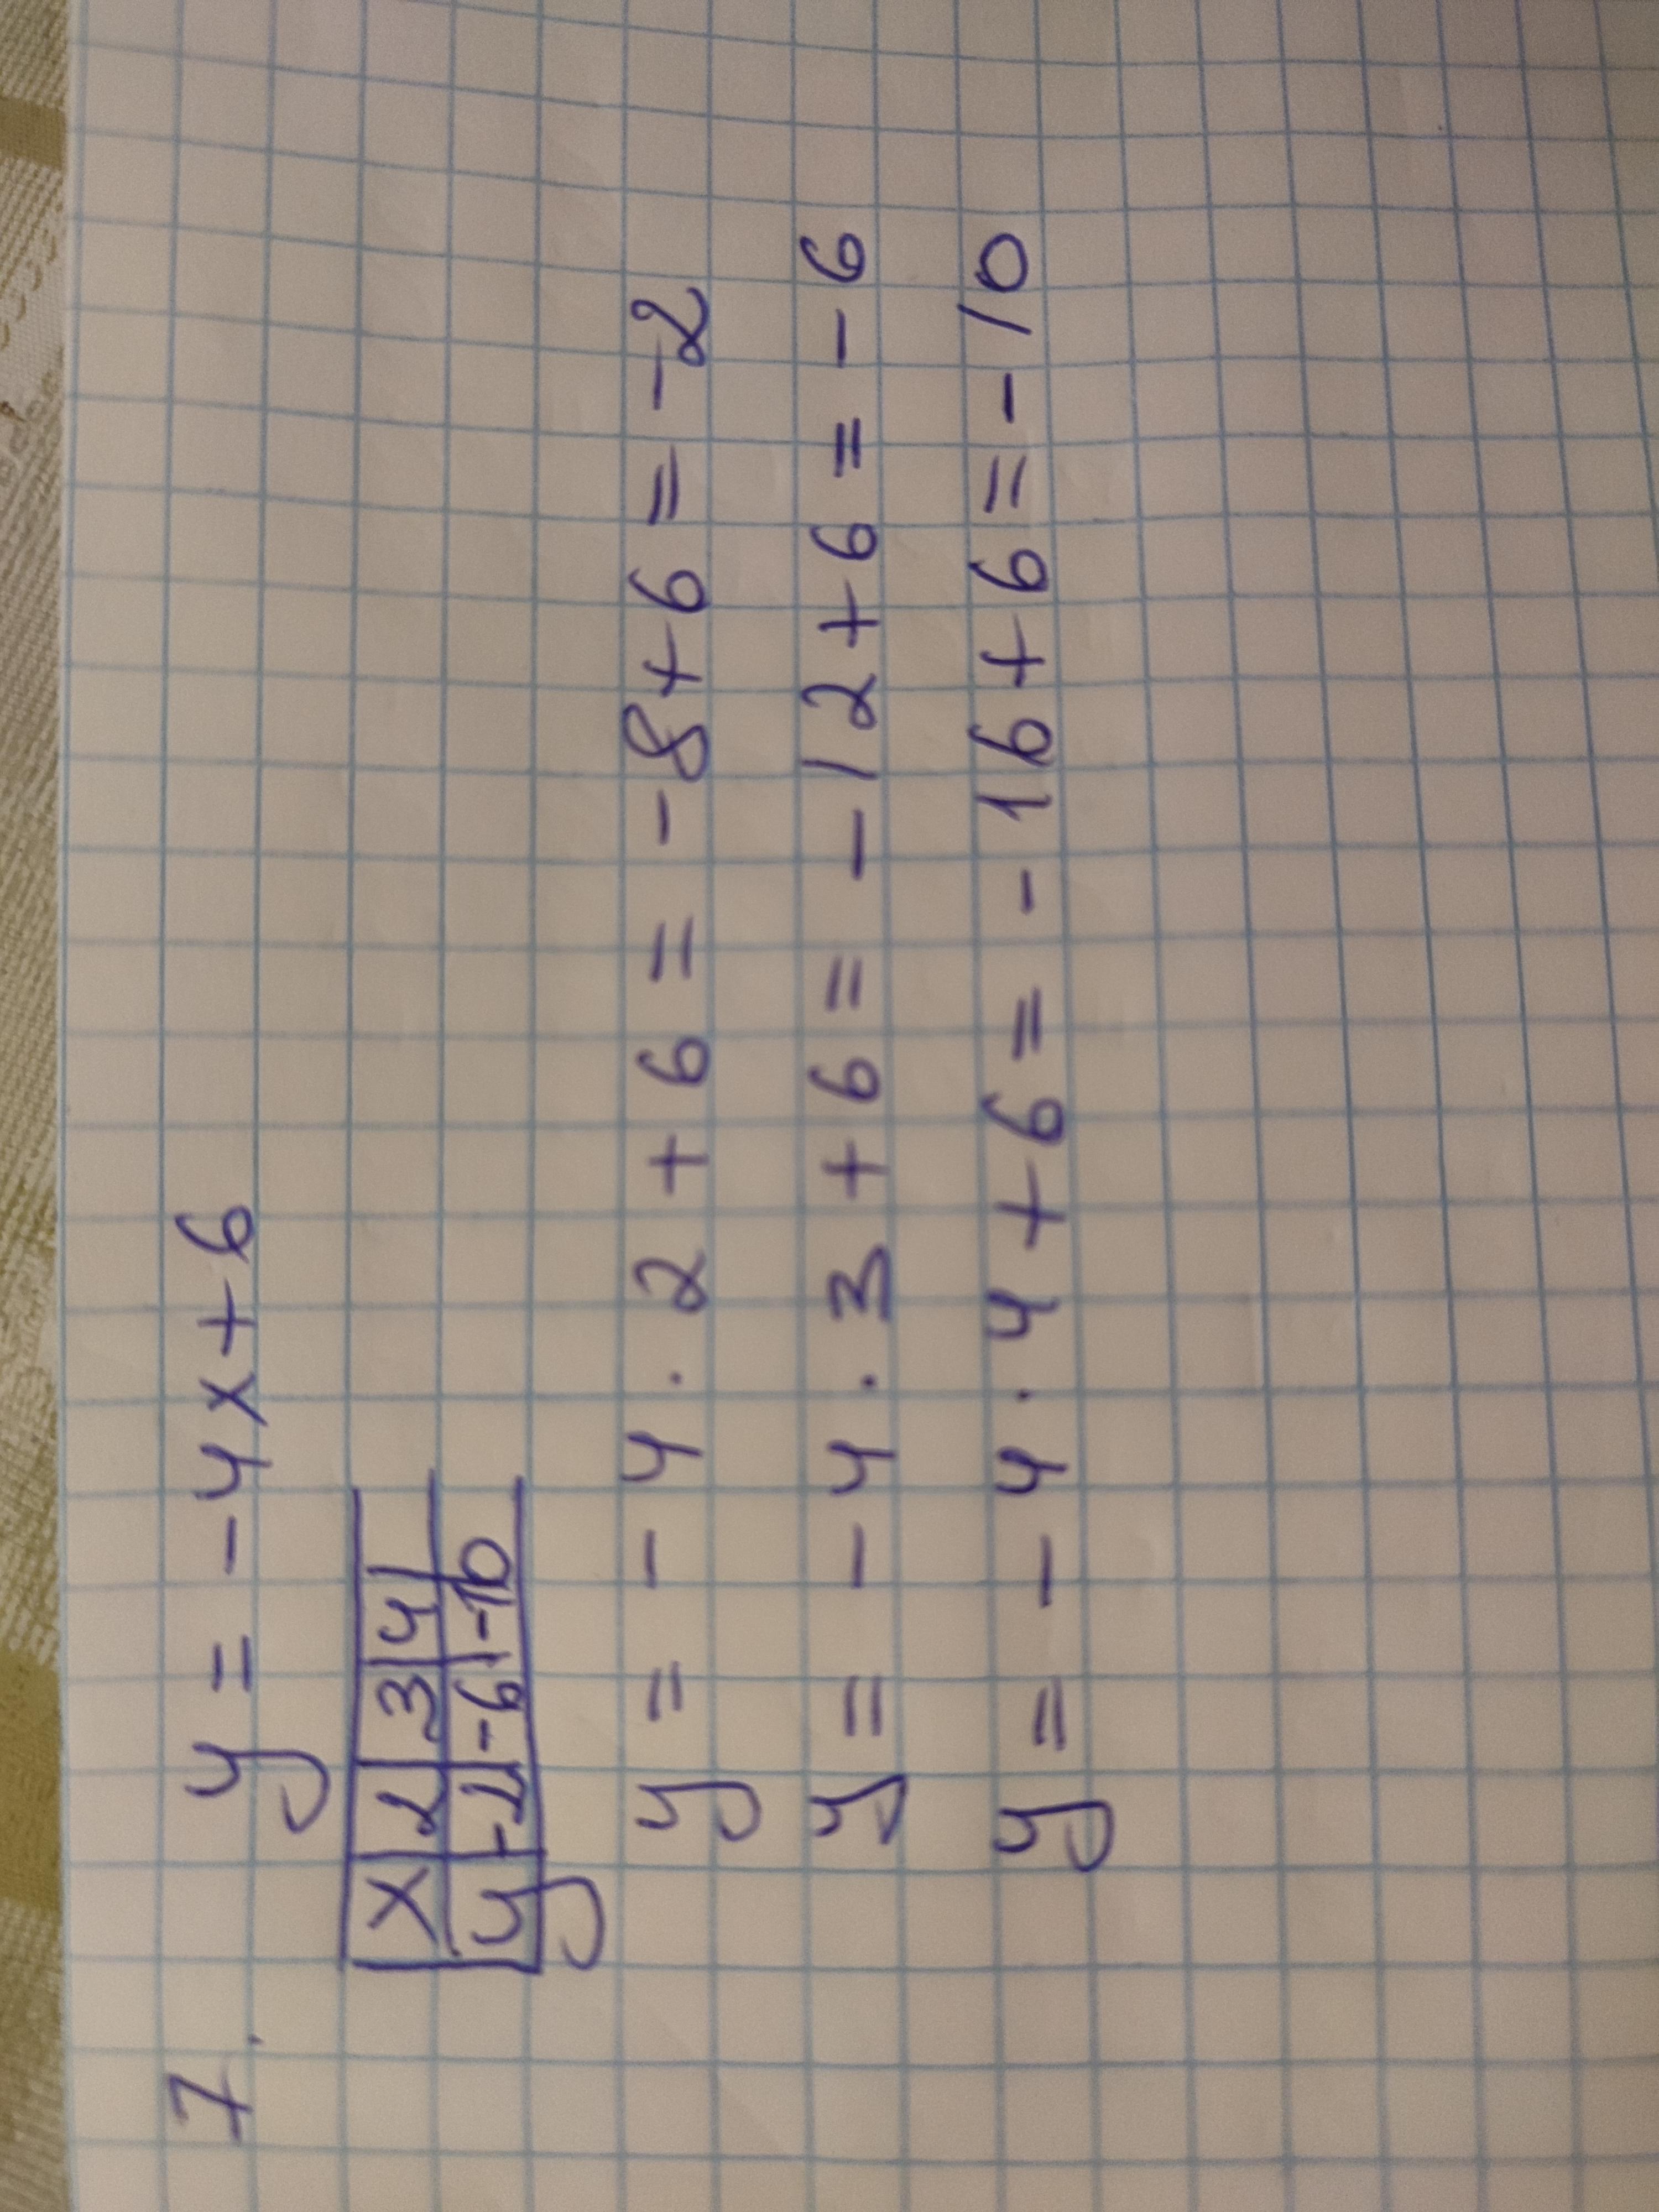 7. y = -4x+6
x 2 3 4
y -2 -6 -10
y = -4·2+6 = -8+6 = -2
y = -4·3+6 = -12+6 = -6
y = -4·4+6 = -16+6 = -10